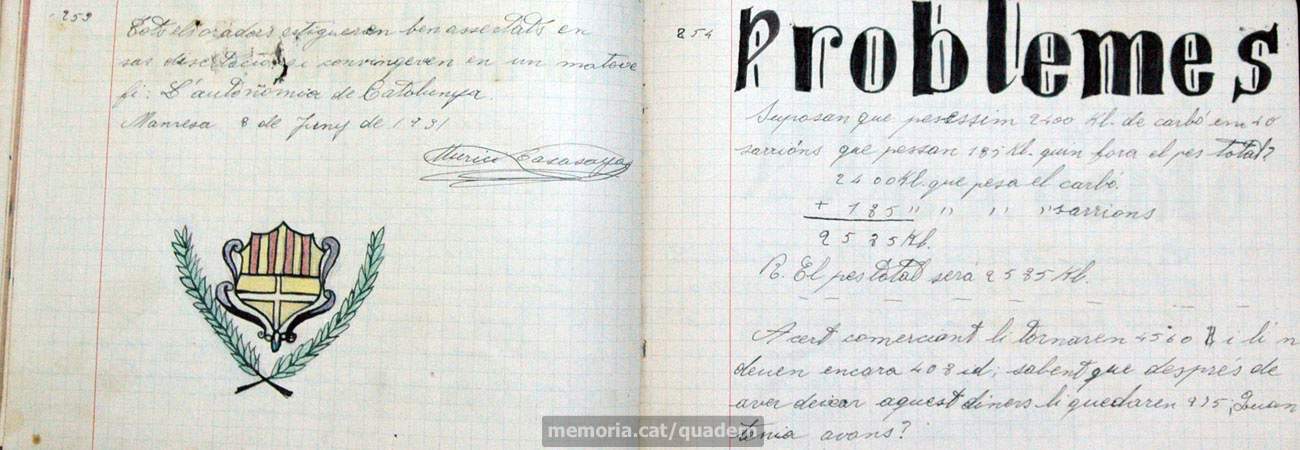 253
Tots els oradors estigueren ben assertats en
ses i convingeren en un mateix
fi: L'autoñomia de Catalunya.
Manresa 8 de Juny de 1931
254
Problemes
Suposan que pesessim 2400 Kl. de carbó em 40
sarrións que pessan 185 Kl. quin fora el pes total?
2400 Kl. que pesa el carbó.
+ 185 " " " " sarrions
2585 Kl.
R. El pes total será 2585 Kl.
A cert comerciant li tornaren 4560 i li n
deuen encara 408 id; sabent que després de
aver deixar aquest diners li quedaren 925, Quan
tenia avans?
memoria.cat/quadern